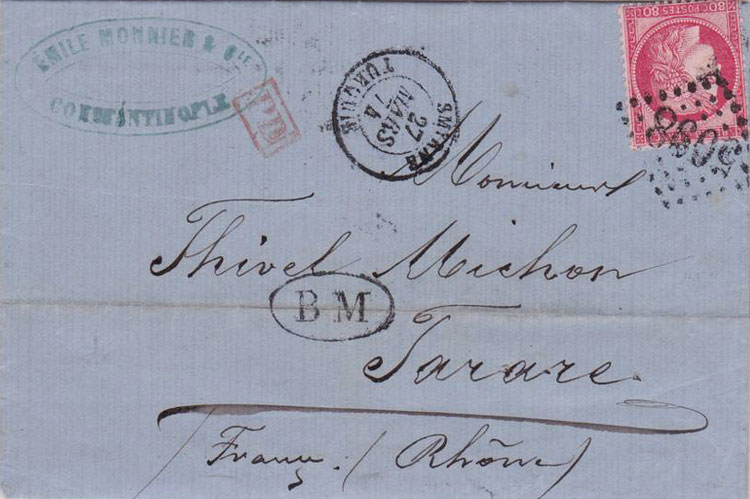 ÉMILE MONNIER & Cie
CONSTANTINOPLE
PD
SMYRNE
27
MARS
74
TURQUIE
80c POSTES 80c
5098
Monsieur
Thivel Michon
BM
Tarare
France. (Rhône)